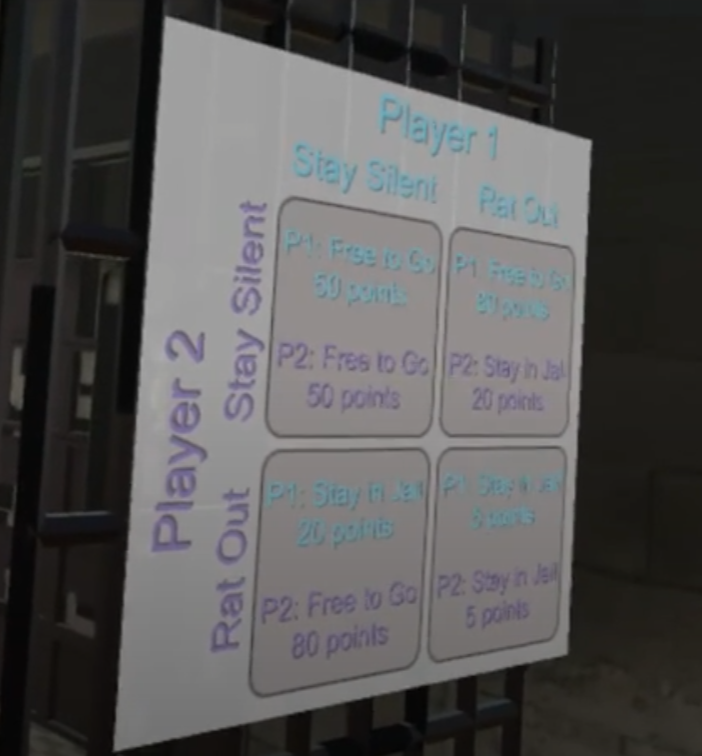 Player 1
Stay Silent
Rat Out
Player 2
Stay Silent
P1: Free to Go
50 points
P2: Free to Go
50 points
P1: Free to Go
80 points
P2: Stay in Jail
20 points
Rat Out
P1: Stay in Jail
20 points
P2: Free to Go
80 points
P1: Stay in Jail
5 points
P2: Stay in Jail
5 points